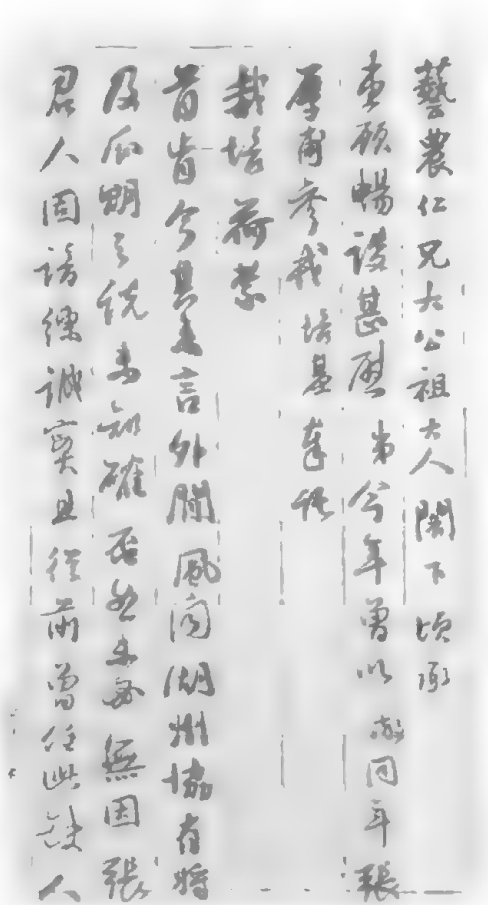 藝農仁兄大公祖大人閣下頃承
惠顧暢談甚慰弟今年曾以敝同年張
厚甫參戎培基奉託
栽培荷蒙
首肯今其未言外間風聞湖州協有將
及瓜期之說未知確否然未無因張
君人固諳練誠實且從前曾任此缺人